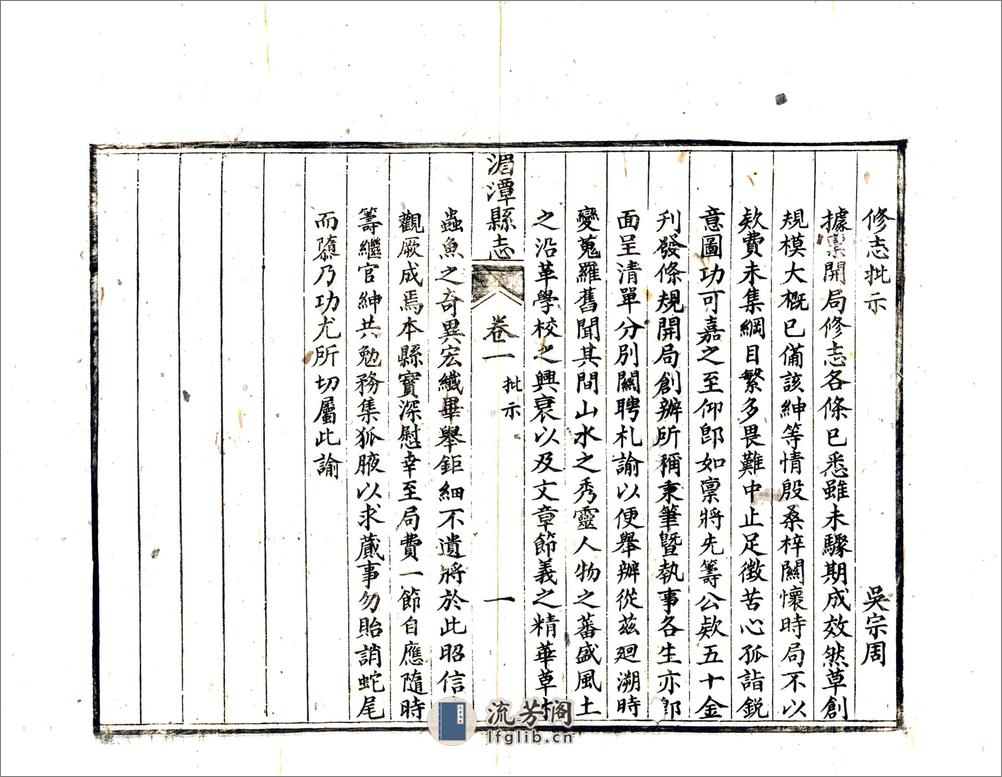 修志批示　吳宗周
據稟開局修志各條已悉雖未驟期成效然草創
規模大概已備該紳等情殷桑梓關懷時局不以
欵費未集綱目繁多畏難中止足徵苦心孤詣銳
意圖功可嘉之至仰卽如稟將先籌公欵五十金
刋發條規開局創辦所稱秉筆曁執事各生亦卽
面呈清單分別關聘札諭以便舉辦從兹廻溯時
變蒐羅舊聞其間山水之秀靈人物之蕃盛風土
之沿革學校之興衰以及文章節義之精華草木
湄潭縣志　卷一　批示　一
蟲魚之奇異宏纖畢舉鉅細不遺將於此昭信
觀厥成焉本縣實深慰幸至局費一節自應隨時
籌繼官紳共勉務集狐腋以求蕆事勿貽誚蛇尾
而隳乃功尤所切屬此諭
流芳閣
lfglib.cn